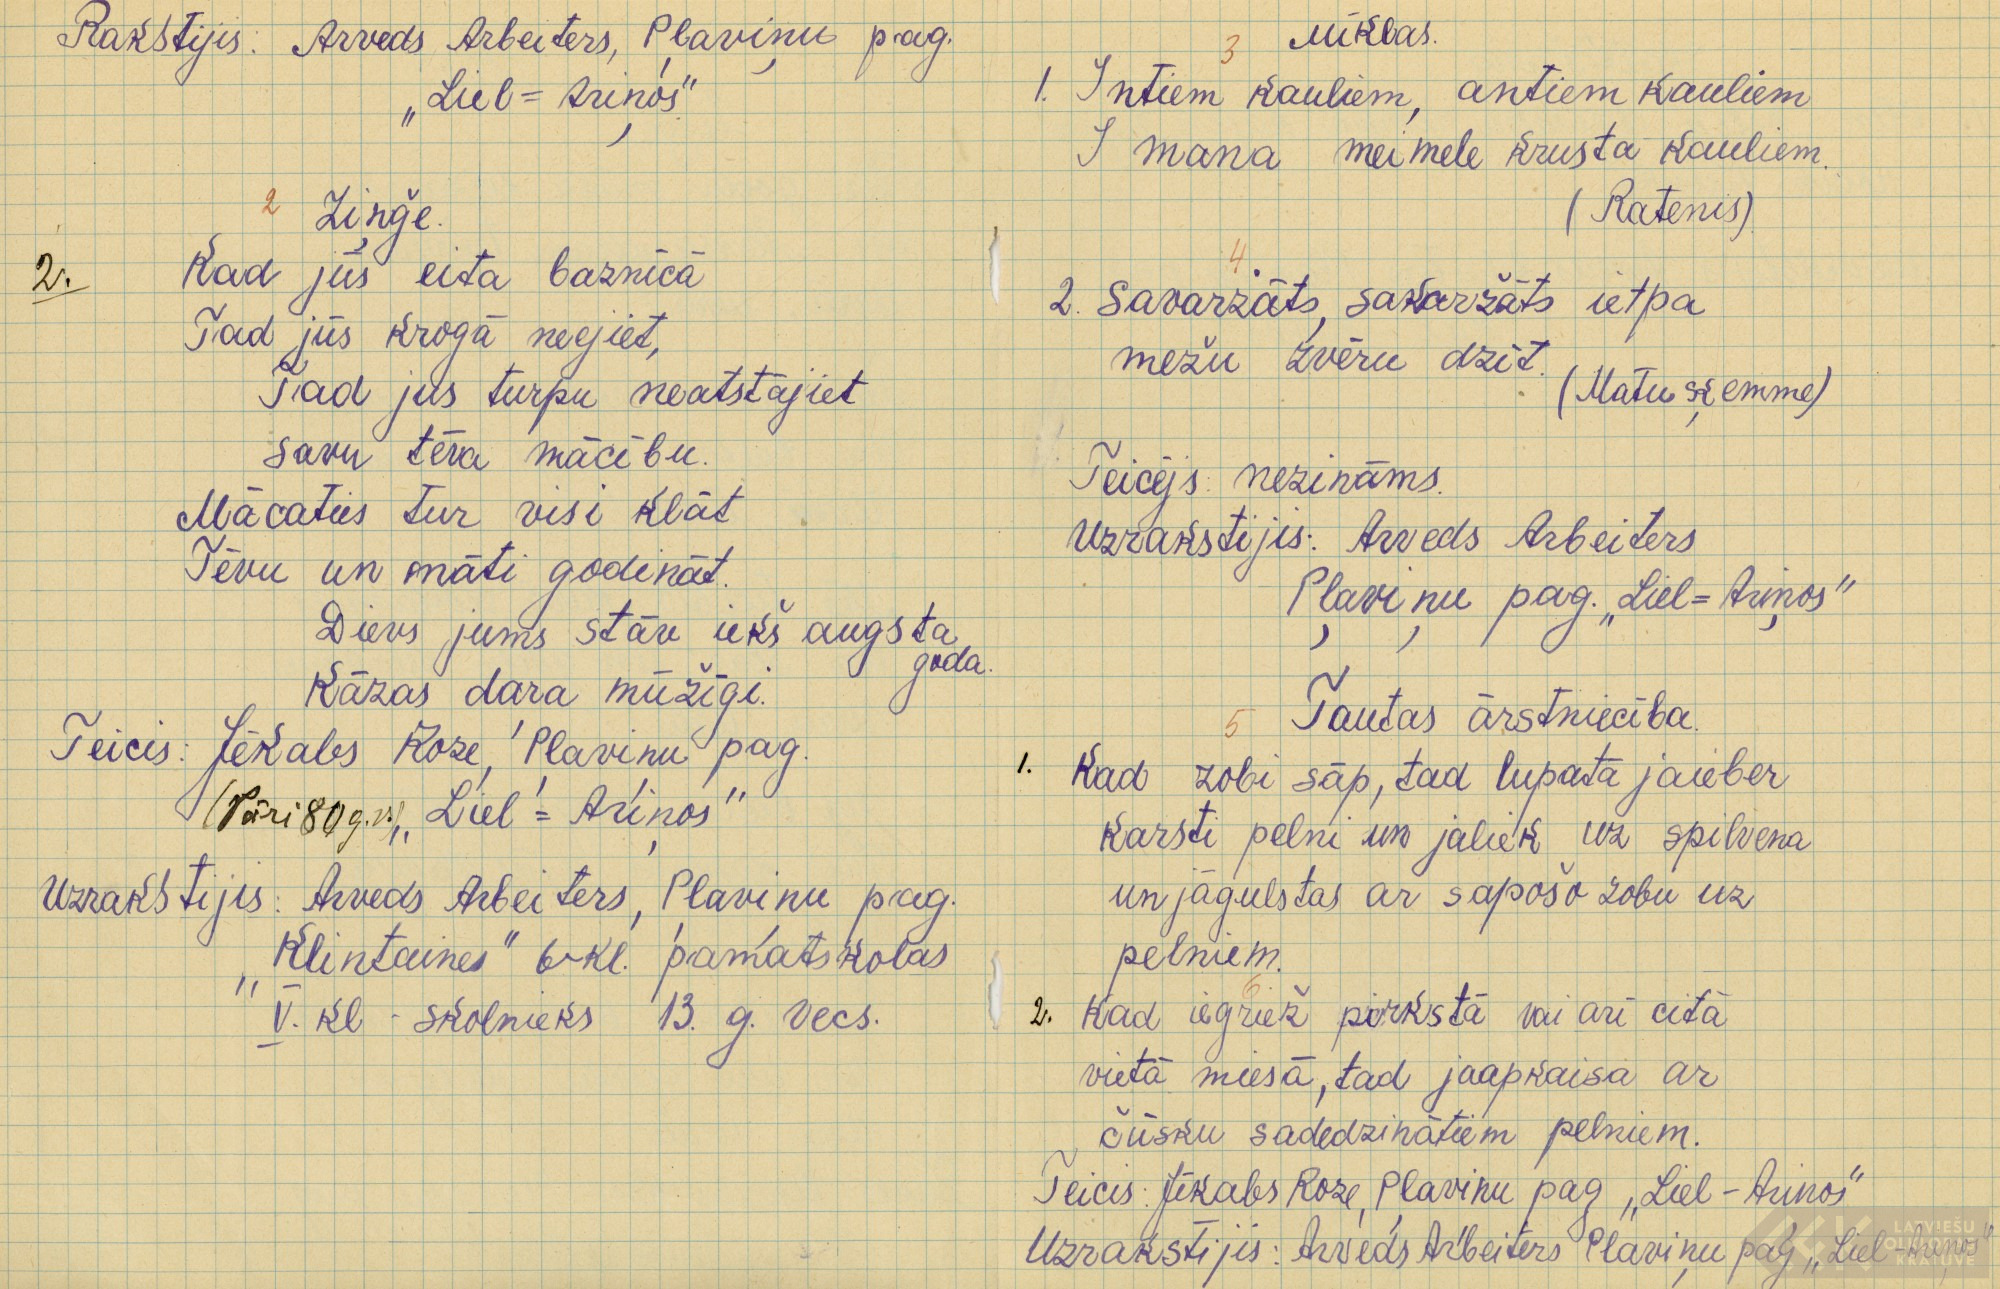 Rakstijis: Arveds Arbeiters, Pļaviņu pag.
„Liel=Ariņos"
2 Ziņģe.
2. Kad jūs eita baznīcā
Tad jūs krogā neejiet,
Tad jūs turpu neatstājiet
savu tēva mācību.
Mācaties tur visi klāt
Tēvu un māti godināt.
Dievs jums stāv iekš augsta
goda.
Kāzas dara mūžīgi.
Teicis: Jēkabs Roze, Pļaviņu pag.
(Pāri 80 g.v.) „Liel=Ariņos"
Uzrakstijis: Arveds Arbeiters, Pļaviņu pag.
„Klintaines" 6-kl. pamatskolas
V. kl - skolnieks 13. g. vecs.
3 Mīklas.
1. Intiem kauliem, antiem kauliem
I mana meimele krusta kauliem.
(Ratenis)
4
2. Savarzāts, sakaržāts ietpa
mežu zvēru dzīt.
(Matu sķemme)
Teicējs: nezināms.
Uzrakstijis: Arveds Arbeiters
Pļaviņu pag. „Liel=Ariņos"
5 Tautas ārstniecība.
1. Kad zobi sāp, tad lupatā jaieber
karsti pelni un jaliek uz spilvena
un jāgulstas ar sapošo zobu uz
pelniem.
6
2. Kad iegriež pirkstā vai arī citā
vietā miesā, tad jaapkaisa ar
čūsku sadedzinātiem pelniem.
Teicis: Jēkabs Roze, Pļaviņu pag „Liel-Ariņos"
Uzrakstijis: Arveds Arbeiters Pļaviņu pag „Liel-Ariņos"
LATVIEŠU
FOLKLORAS
KRĀTUVE